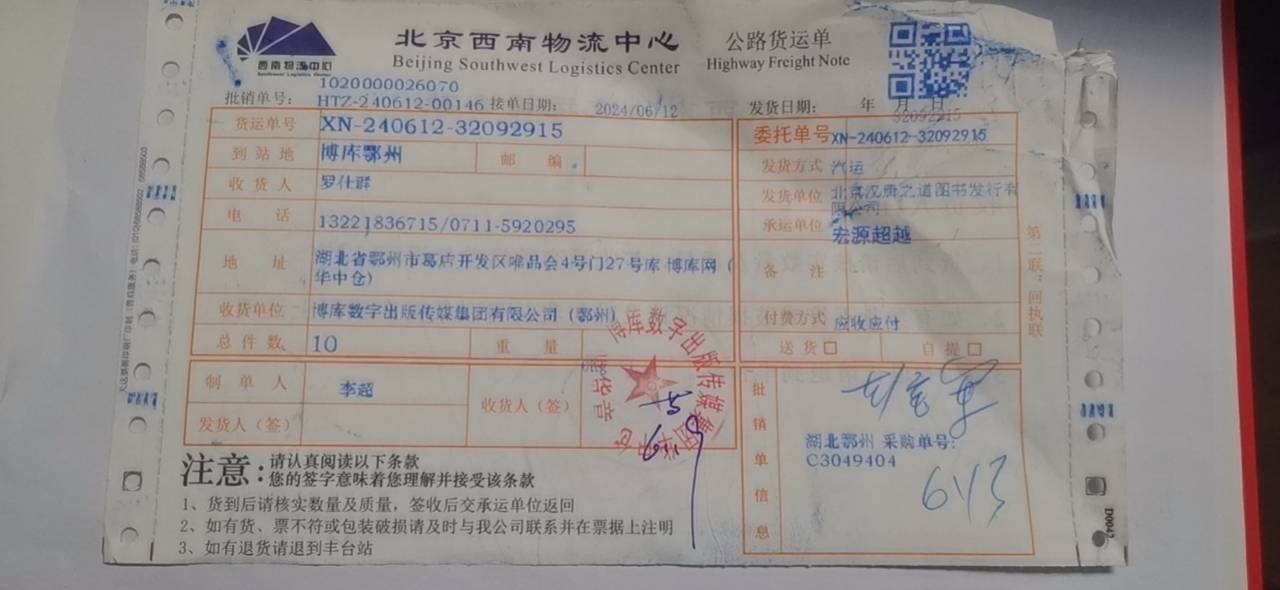 西南物流中心
Southwest Logistics Center
北京西南物流中心
Beijing Southwest Logistics Center
公路货运单
Highway Freight Note
1020000026070
批销单号: HTZ-240612-00146 接单日期: 2024/06/12 发货日期: 年 月 日
32092915
货运单号 XN-240612-32092915
委托单号 XN-240612-32092915
到站地 博库鄂州 邮 编
发货方式 汽运
收货人 罗仕群
发货单位 北京汉唐之道图书发行有限公司
电 话 13221836715/0711-5920295
承运单位 宏源超越
地 址 湖北省鄂州市葛店开发区唯品会4号门27号库 博库网(
华中仓)
备 注
收货单位 博库数字出版传媒集团有限公司(鄂州)
付费方式 应收应付
总件数 10 重 量
送货□ 自提□
制单人 李超
收货人(签)
发货人(签)
博库数字出版传媒集团
批销单信息
湖北鄂州 采购单号:
C3049404
6/13
注意:
请认真阅读以下条款
您的签字意味着您理解并接受该条款
1、货到后请核实数量及质量,签收后交承运单位返回
2、如有货、票不符或包装破损请及时与我公司联系并在票据上注明
3、如有退货请退到丰台站
第二联:回执联
D0042